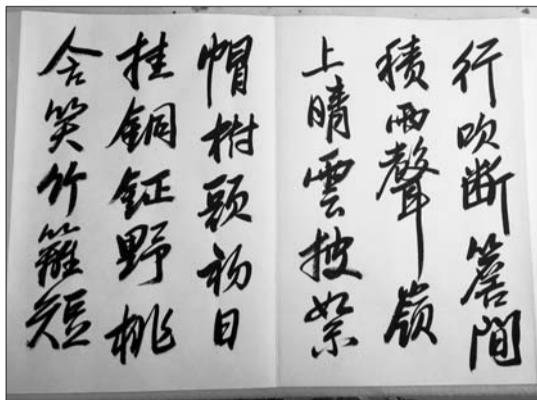 行吹断簷間
積雨聲嶺
上晴雲披絮
帽樹頭初日
挂銅鉦野桃
含笑竹籬短